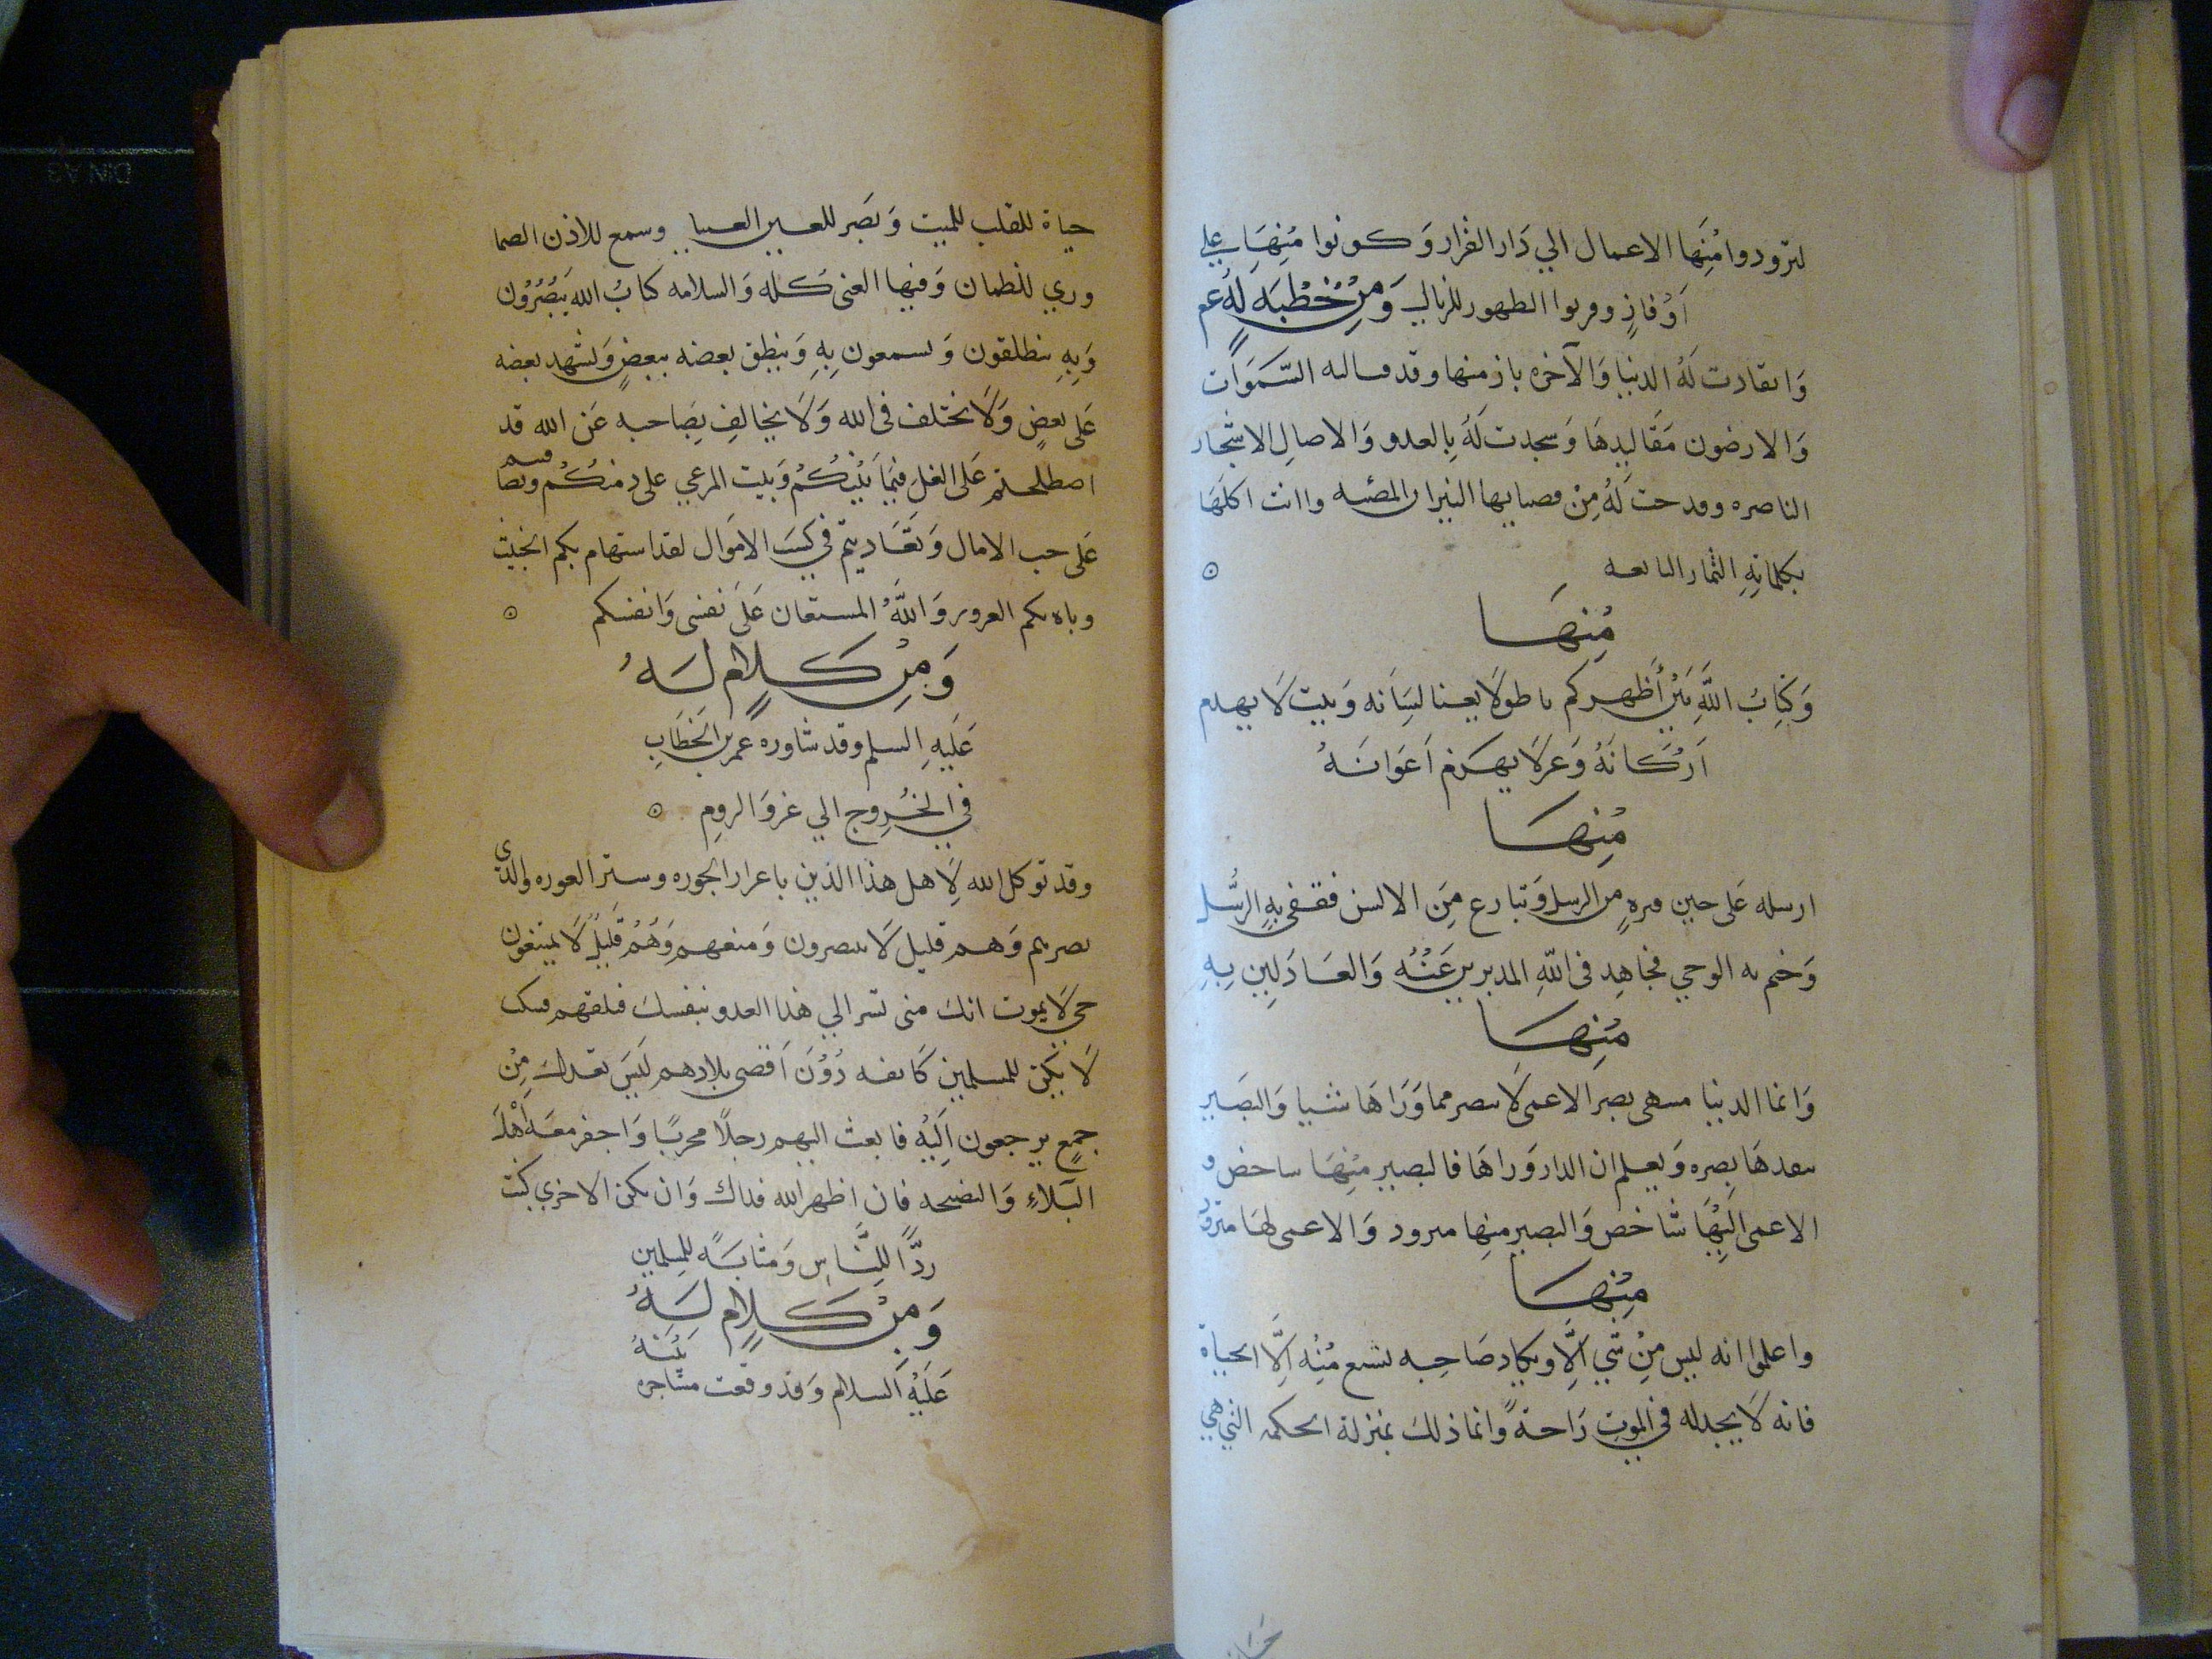 لتزودوا مِنهَا الاعمال الي دَار القرار وَكونوا مِنهَا علي
اَوْفازٍ وقربوا الظهور للزيال وَمِنْ خُطْبَةٍ لَهُ عم
وَانقادت لَهُ الدنيا وَالآخره بازمتها وقدفت اليه السَّمَوَات
وَالارضون مَقَاليدهَا وَسجدت لَهُ بِالغدو وَالاصالِ الاشجار
الناضره وقدحت لَهُ مِنْ قضبانها النيران المضيئه واتت اكلهَا
بكلماتِهِ الثمار اليانعه
مُنهَا
وَكِتَابُ اللهِ بَيْنَ أَظهركم ناطق لَا يعيا لسَانه وَبيت لَا يهدم
اَرْكَانَهُ وَعز لَا يهزم اَعوَانَهُ
مُنهَا
ارسله عَلى حين فترهٍ من الرسل وَتنازع مِنَ الالسن فقفى بِهِ الرُّسل
وَختم به الوحي فجَاهد في اللهِ المدبرين عَنْهُ وَالعَادلين بِهِ
مِنهَا
وَانما الدنيا منتهى بصر الاعمى لَا يبصر مما وَرَاهَا شيا وَالبَصير
ينفدهَا بصره وَيعلم ان الدار وَراهَا فالبصير مِنهَا شاخص و
الاعمى اليْهَا شَاخص وَالبصير منها متزود وَالاعمى لهَا متزود
مِنهَا
واعلموا انه ليس مِنْ شي اِلَّا ويكاد صَاحِبه يشبع مُنْه اِلَّا الحياة
فانه لَا يجد له في الموت رَاحةً وانما ذلك بمنزلة الحكمه التي هي
حياة للقلب للميت وَبصَر للعين العميا وسمع للاذن الصما
وري للظمان وَفيها الغنى كله وَالسلامه كتابُ الله تبْصُرُون
وَبِهِ تنطلقون وَتسمعون بِهِ وَينطق بعضه ببعضٍ وَيشهد بعضه
عَلى بعضٍ وَلَا يختلف في الله وَلَا يخالف بِصَاحبه عَن الله قد
اصطلحتم عَلى الغل فيمَا بَيْنكُمْ وَنبت المرعي على دمنكُمْ وتصافيتم
عَلى حب الامال وَتَعَاديتم في كسَب الاموَال لقد استهام بكم الخبيث
وتاه بكم الغرور وَاللهُ المستعَان عَلَى نفسي وَانفسكم
وَمِنْ كَلامٍ لَهُ
عَليهِ السلم وقد شاوره عمر بن الخَطَابِ
في الخُروج الي غزو الروم
وقد توكل الله لِاهل هذا الدين باعزاز الحوزه وستر العوره والذي
نصرهم وَهم قليل لَا ينتصرون وَمنعهم وَهُمْ قَليلٌ لَا يمتنعون
حي لَا يموت انك متى تسر الي هذا العدو بنفسك فتلقهم فتنكب
لَا يَكن للمسلمين كَانفه دُوْنَ اَقصى بلادهم لَيسَ بَعدك مِنْ
جمعٍ يرجعون اِلَيْهِ فابعث اليهم رجلًا محربًا وَاحفز مَعَه اَهْلَ
البَلاءِ وَالنصيحه فان اظهر الله فذاك وَان تكن الاخري كنت
ردًّا للنَّاس وَمثابَةً للمسلمين
وَمِنْ كَلامٍ لَهُ
عَلَيْهِ السلام وَقد وقعت مشاجره بَيْنَهُ